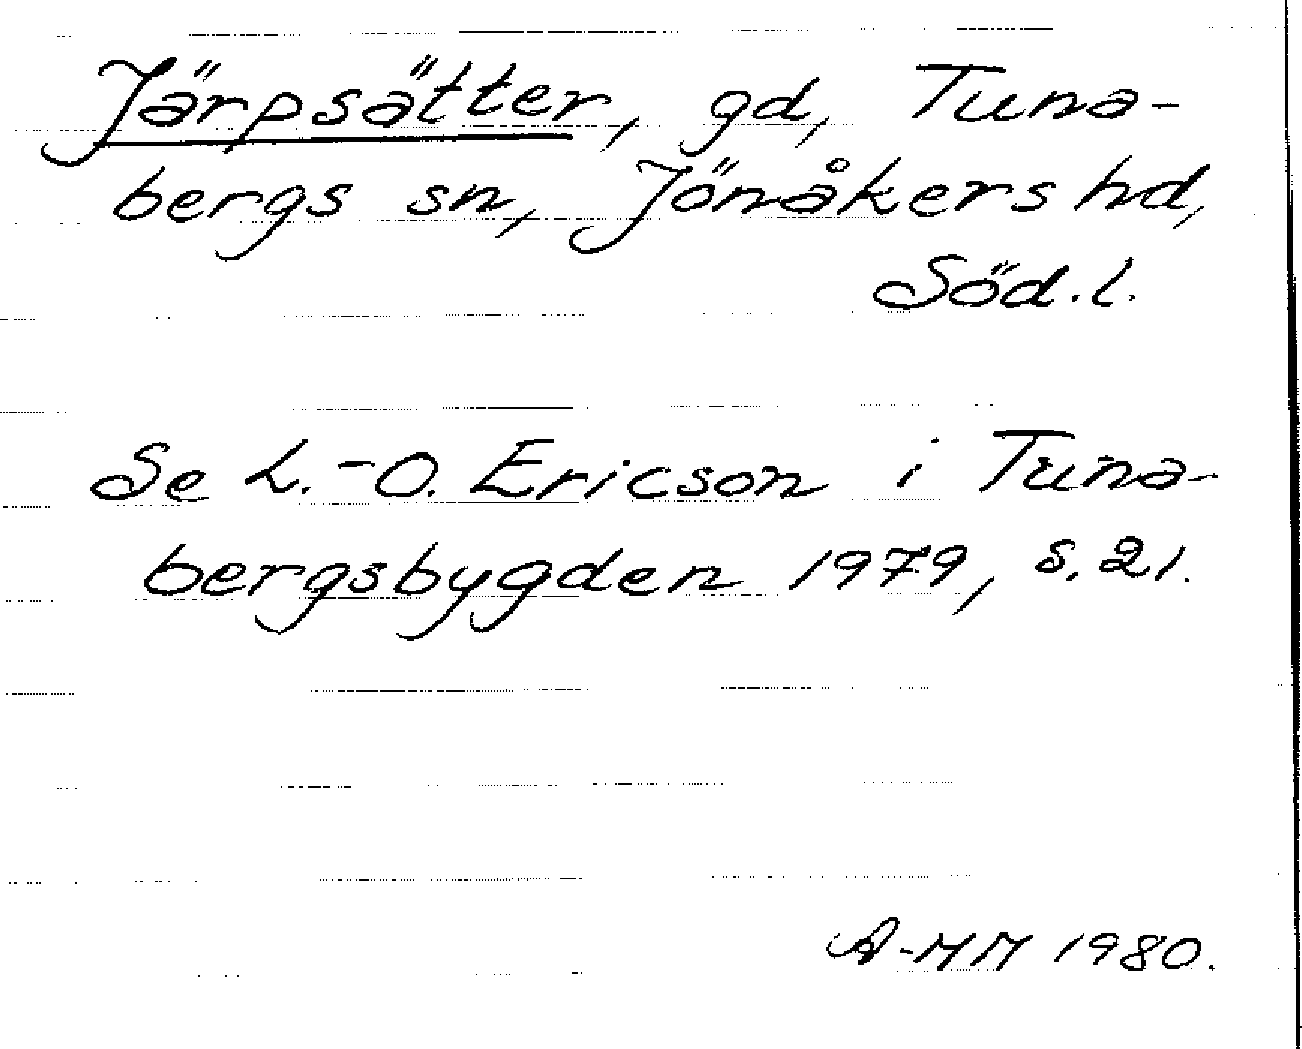 Järpsätter, gd, Tuna-
bergs sn, Jönåkers hd,
Söd.l.
Se L.-O. Ericson i Tuna-
bergsbygden 1979, s. 21.
A-MM 1980.